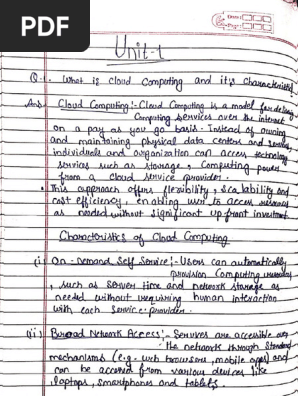 PDF
Unit-1
Q-1. What is Cloud Computing and it's characteristics
Ans Cloud Computing:- Cloud Computing is a model for delivering
Computing services over the internet
on a pay as you go basis. Instead of owning
and maintaining physical data centers and servers,
individuals and organization can access technology
services such as storage, Computing power
from a cloud service provider.
• This approach offers flexibility, scalability and
cost efficiency, enabling user to access resources
as needed without significant upfront investment.
Characteristics of Cloud Computing
(i) On-Demand Self Service:- Users can automatically
provision Computing resources
, such as server time and network storage as
needed without requiring human interaction
with each service provider.
(ii) Broad Network Access:- Services are accessible over
the network through standard
mechanisms (e.g. web browsers, mobile apps) and
can be accessed from various devices like
laptops, smartphones and tablets.